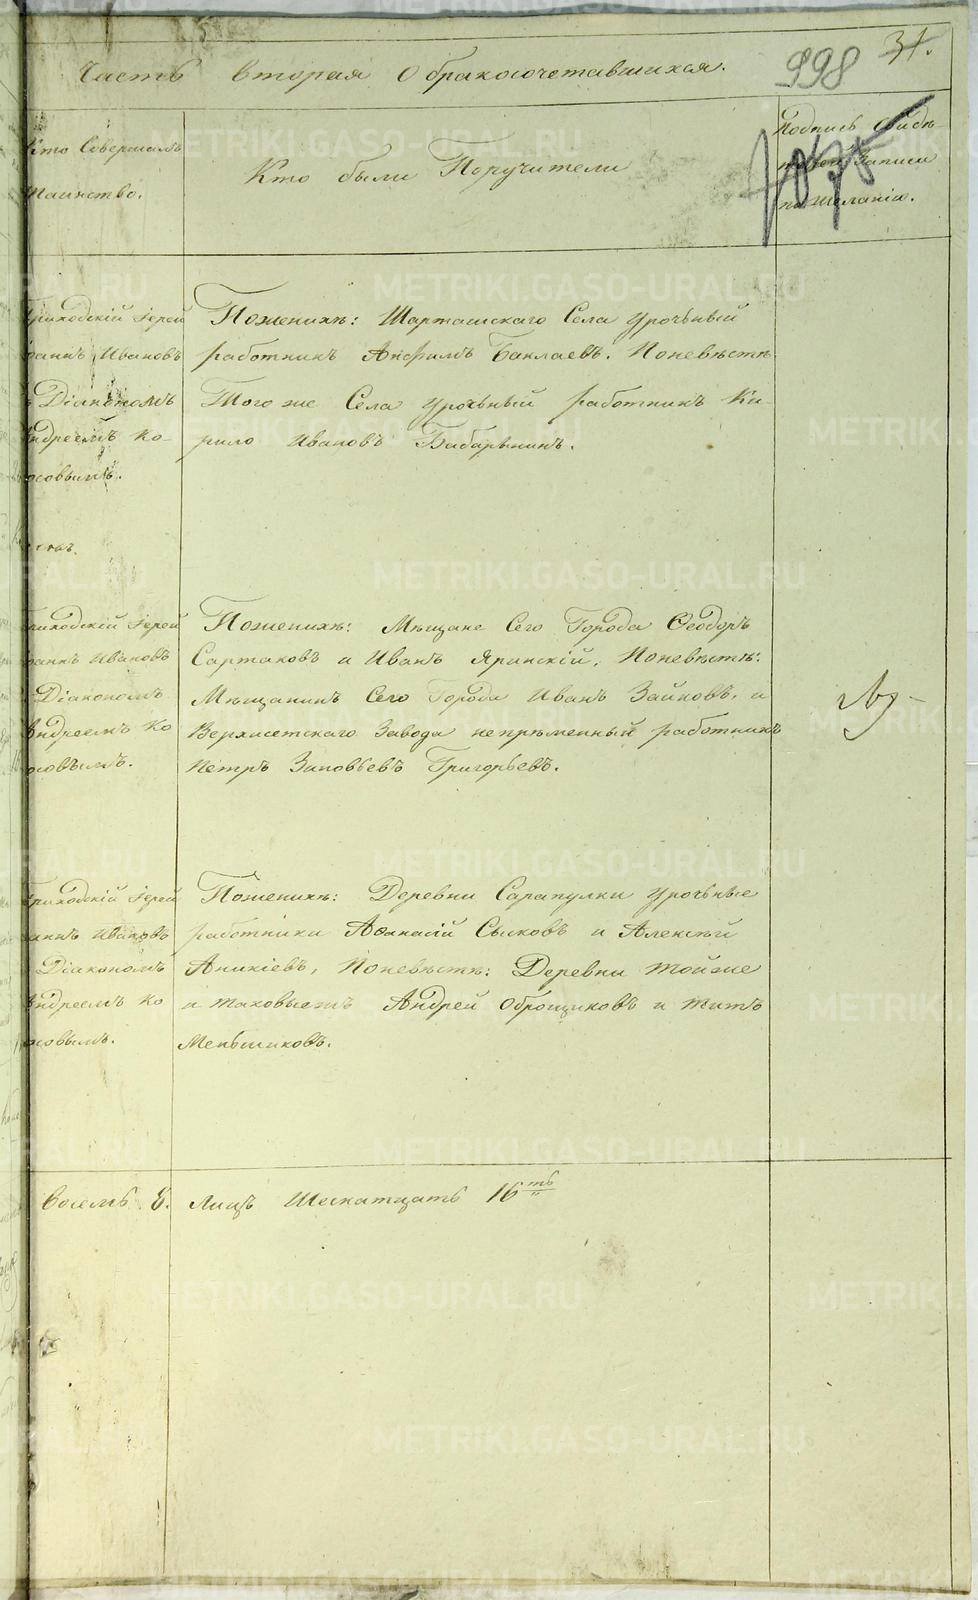 31.
Часть вторая О бракосочетавшихся.
998
Кто Совершалъ
таинство.
Кто были Поручители
Подпись Свидѣ-
телей Записи
по желанію.
Приходскій Іерей
Іоаннъ Ивановъ
Діакономъ
Андреемъ Ко-
осовымъ.
Поженихѣ: Шарташскаго Села урочьный
работникъ Анфимъ Баклаевъ. Поневѣстѣ
Того же Села урочьный работникъ Ки-
рило Ивановъ Бабарыкинъ.
Приходскій Іерей
Іоаннъ Ивановъ
Діакономъ
Андреемъ Ко
осовымъ.
Поженихѣ: Мѣщане Сего Города Ѳеодоръ
Сартаковъ и Иванъ Яринскій. Поневѣстѣ:
Мѣщанинъ Сего Города Иванъ Зайковъ. и
Верхисетскаго Завода непрѣменный работникъ
Петръ Зиновьевъ Григорьевъ.
Приходскій Іерей
Іоаннъ Ивановъ
Діакономъ
Андреемъ Ко
осовымъ.
Поженихѣ: Деревни Сарапулки урочьные
работники Аѳанасій Сысковъ и Алексѣй
Аникіевъ, Поневѣстѣ: Деревни тойже
и таковыежъ Андрей Оброщиковъ и Титъ
Меньшиковъ.
восемь 8. Лицъ Шеснатцать 16ть
METRIKI.GASO-URAL.RU